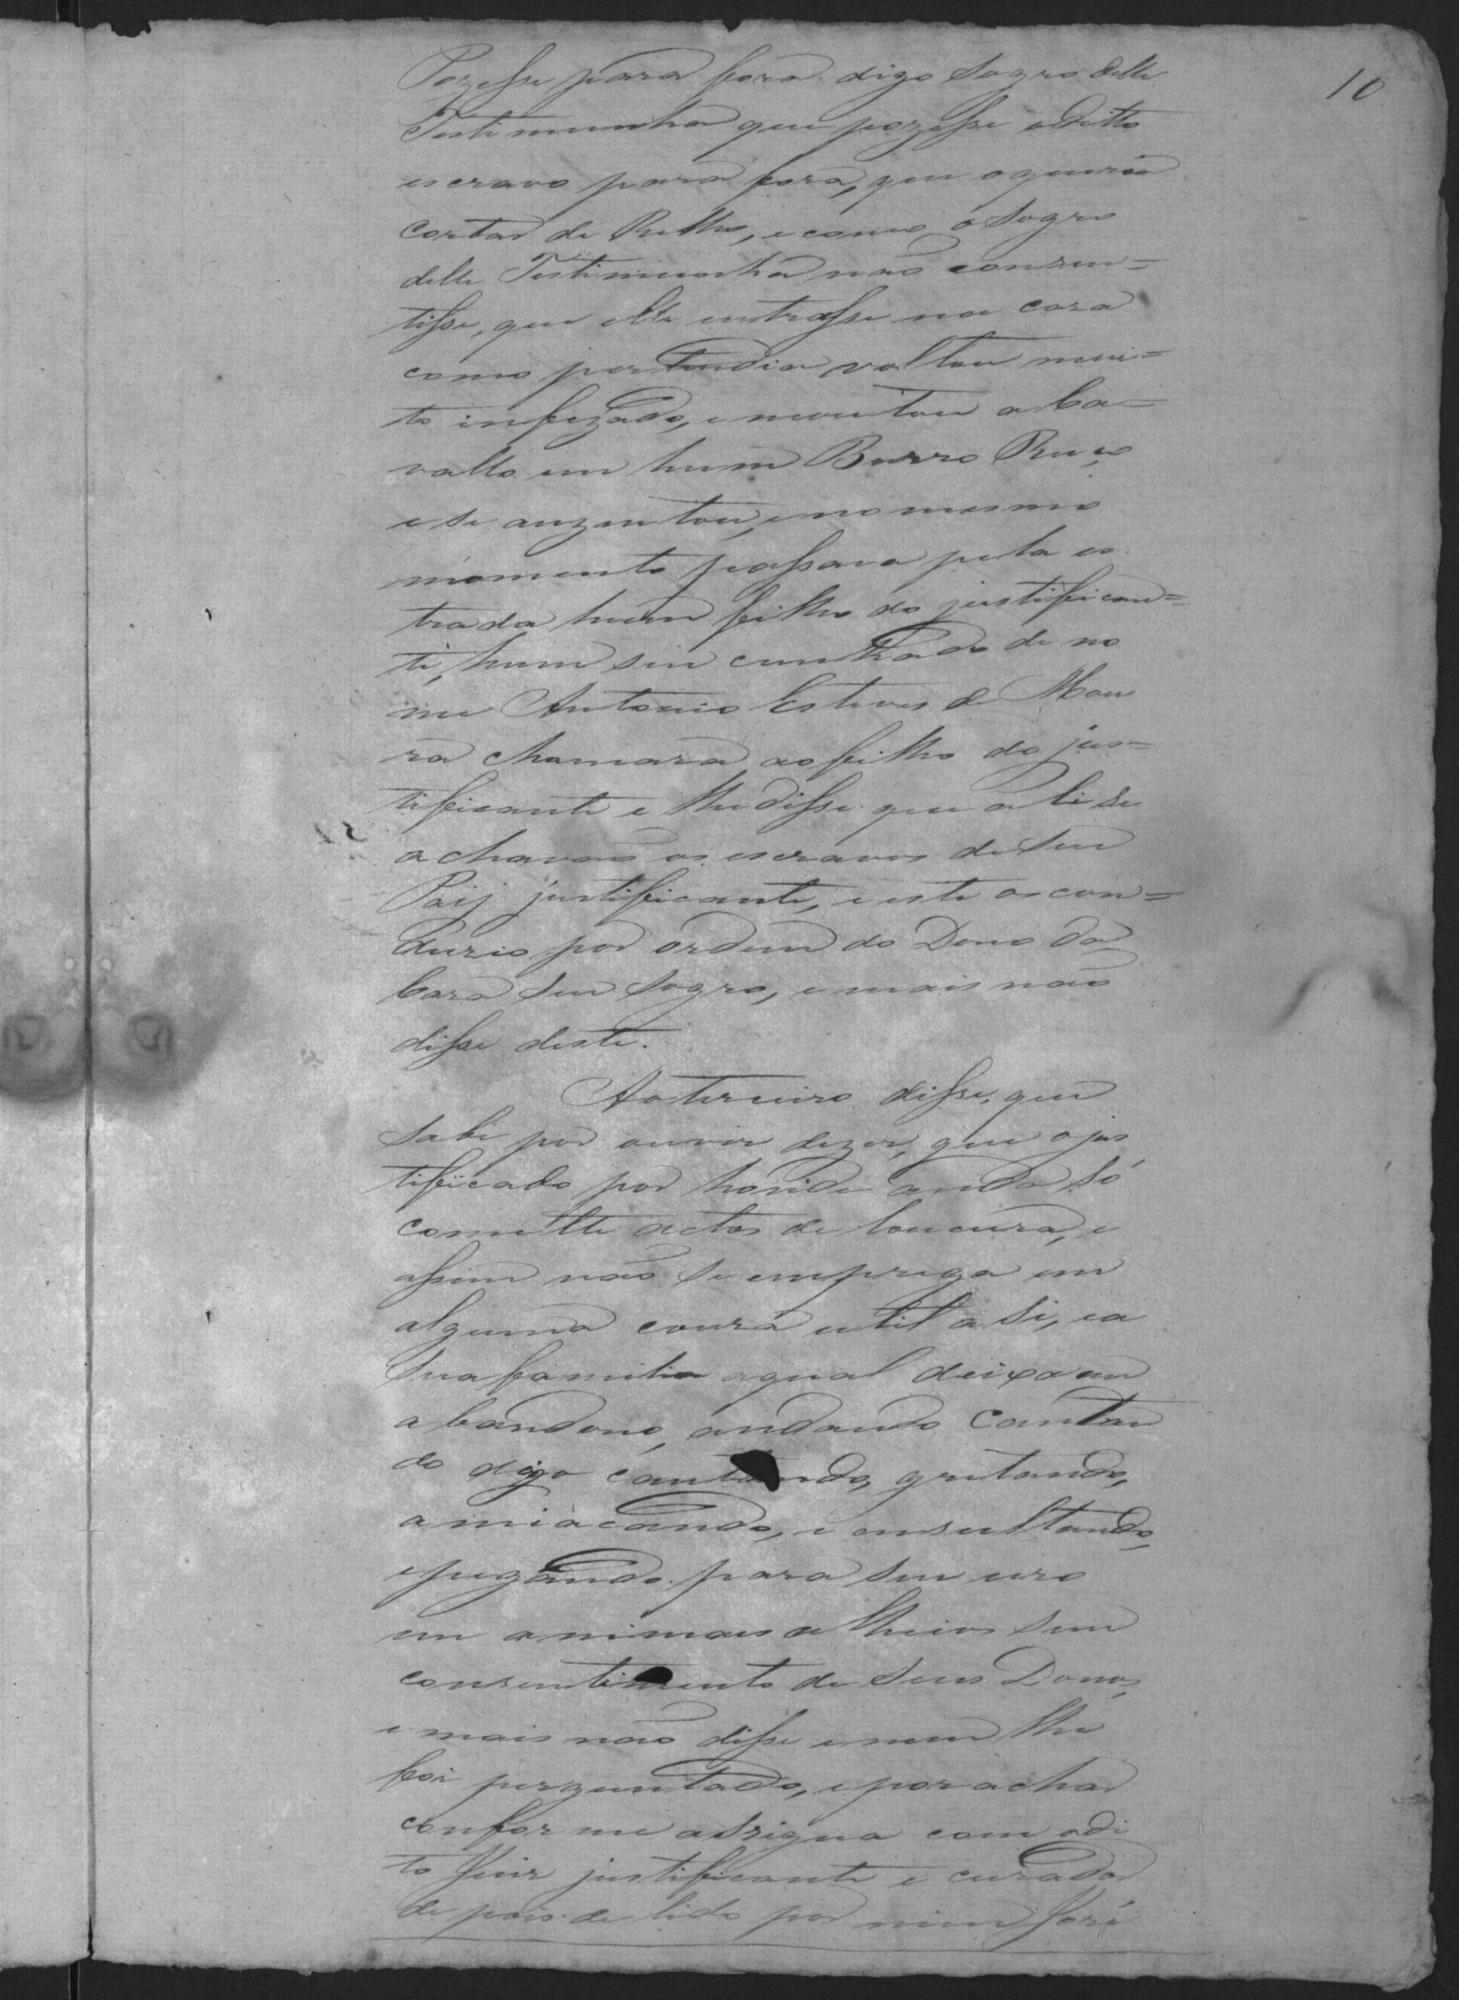 10
Pozesse para fora digo Sogro delle
Testimunha que pozesse o ditto
escravo para fora, que o queria
cortar de Relho, e como o Sogro
delle Testimunha não consen=
tisse, que elle entrasse na caza
como pertendia voltou mui=
to infezado, e montou a Ca=
vallo em hum Burro Ruço
e se auzentou, e no mesmo
momento passava pela es
trada hum filho do justifican=
te, hum seu cunhado de no
me Antonio Esteves de Mou
ra chamara ao filho do jus=
tificante e lhe disse que ali se
achavão os escravos de seu
Paij justificante, e este os con=
duzio por ordem do Dono da
Caza seu Sogro, e mais não
disse deste.
Ao terceiro disse, que
sabe por ouvir dizer, que o jus
tificado por honde anda só
comette actos de loucura, e
assim não se emprega em
alguma couza util a si, e a
sua familia a qual deixa em
abandono, andando Cantan
do digo cantando, gritando,
amiaçando, e ensultando,
e pegando para seu uzo
em animaes alheios sem
consentimento de seus Donos,
e mais não disse e nem lhe
foi perguntado, e por achar
conforme assigna com o di
to Juiz justificante e curador
depois de lido por mim José